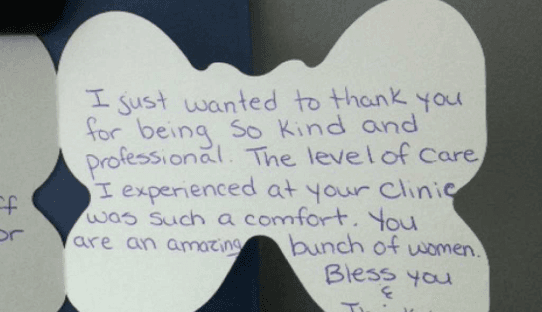 I just wanted to thank you
for being so kind and
professional. The level of care
I experienced at your Clinic
was such a comfort. You
are an amazing bunch of women.
Bless you
&